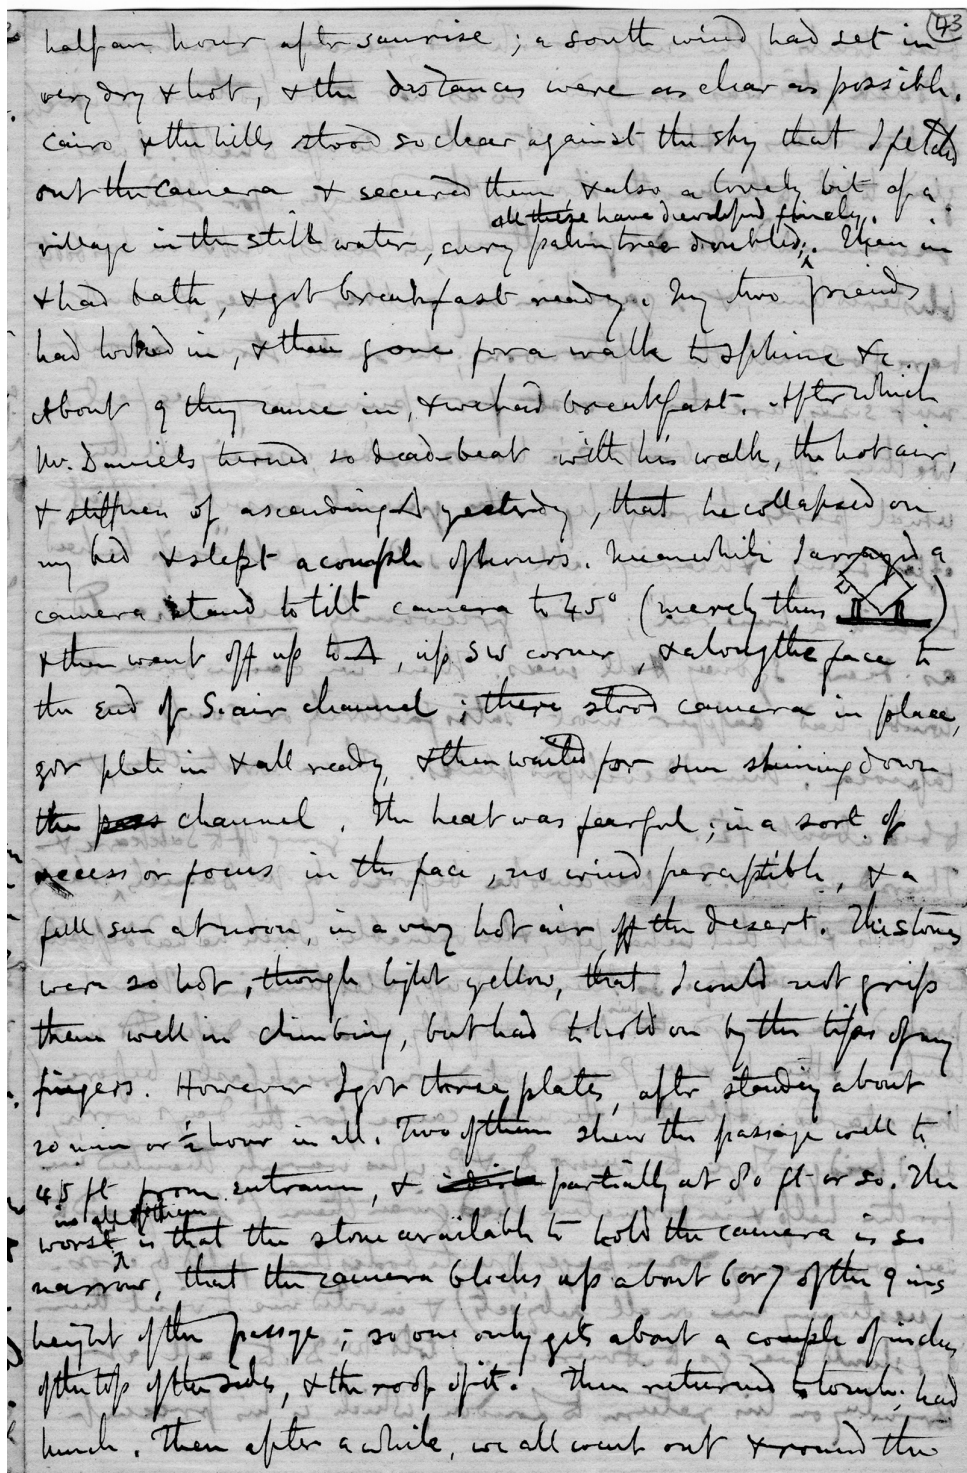 43
half an hour after sunrise ; a south wind had set in
very dry & hot, & the distances were as clear as possible.
Cairo & the hills stood so clear against the sky that I fetched
out the camera & secured them & also a lovely bit of a
all these have developed finely.
village in the still water, every palm tree doubled ;. Then in
& had bath, & got breakfast ready. My two friends
had looked in, & then gone for a walk to sphinx &c
About 9 they came in, & we had breakfast. After which
Mr. Daniels turned so dead-beat with his walk, the hot air,
& stiffness of ascending △ yesterday, that he collapsed on
my bed & slept a couple of hours. Meanwhile I arranged a
camera stand to tilt camera to 45° (merely thus )
& then went off up to △, up SW corner, & along the face to
the end of S. air channel ; there stood camera in place,
got plate in & all ready, & then waited for sun shining down
the pass channel. The heat was fearful ; in a sort of
recess or focus in the face, no wind perceptible, & a
full sun at noon, in a very hot air off the desert. The stones
were so hot, though light yellow, that I could not grip
them well in climbing, but had to hold on by the tips of my
fingers. However I got three plates, after standing about
20 min or ½ hour in all. Two of them shew the passage well to
45 ft from entrance, & partially at 80 ft or so. The
in all of them
worst is that the stone available to hold the camera is so
narrow, that the camera blocks up about 6 or 7 of the 9 ins
height of the passage ; so one only gets about a couple of inches
of the top of the sides, & the roof of it. Then returned to tomb, had
lunch. Then after a while, we all went out & round the